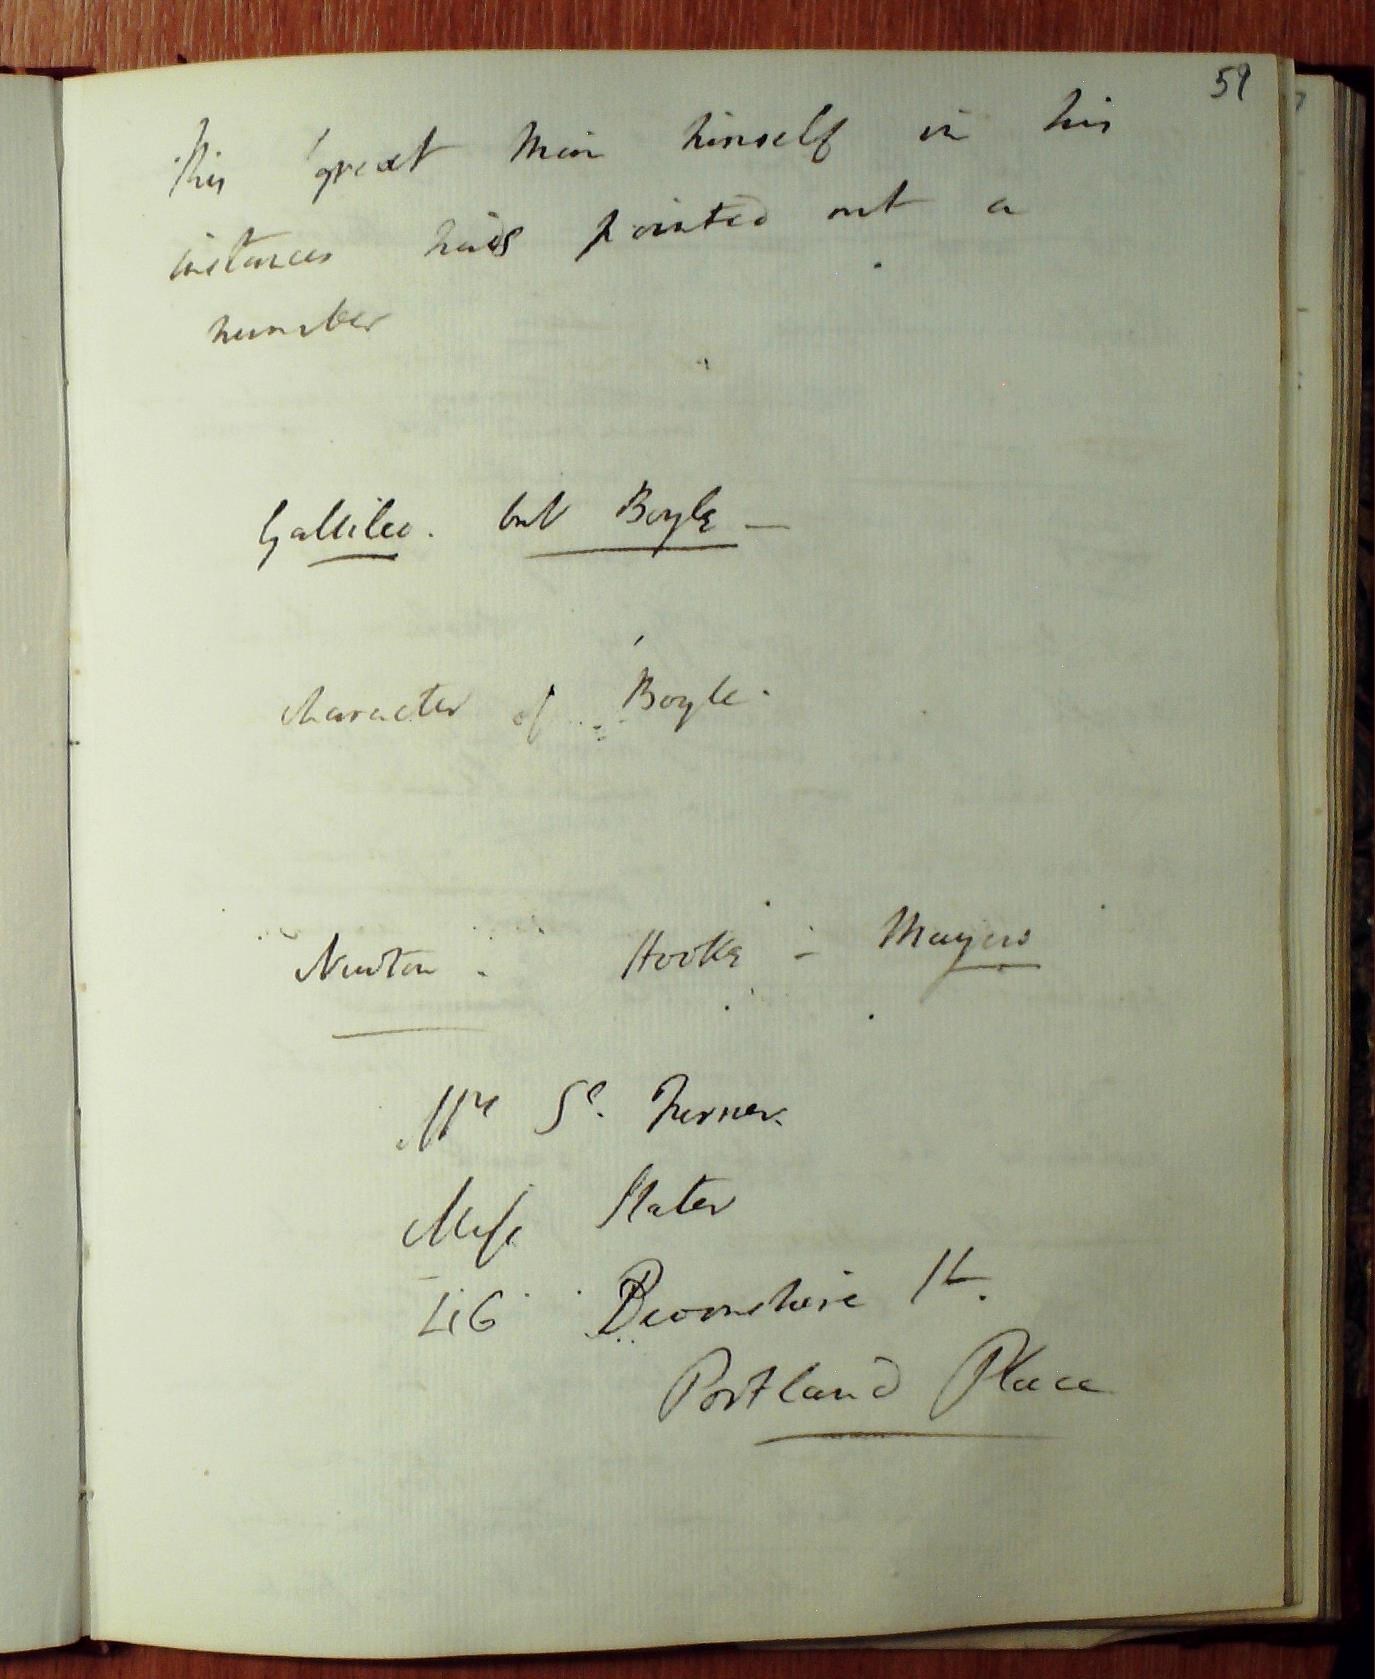 59
This great Man himself in his
instances has pointed out a
number
Gallileo. but Boyle —
character of Boyle.
Newton. Hooke - Mayow
Mrs Turner.
Miſs Slater
46 Devonshire St.
Portland Place